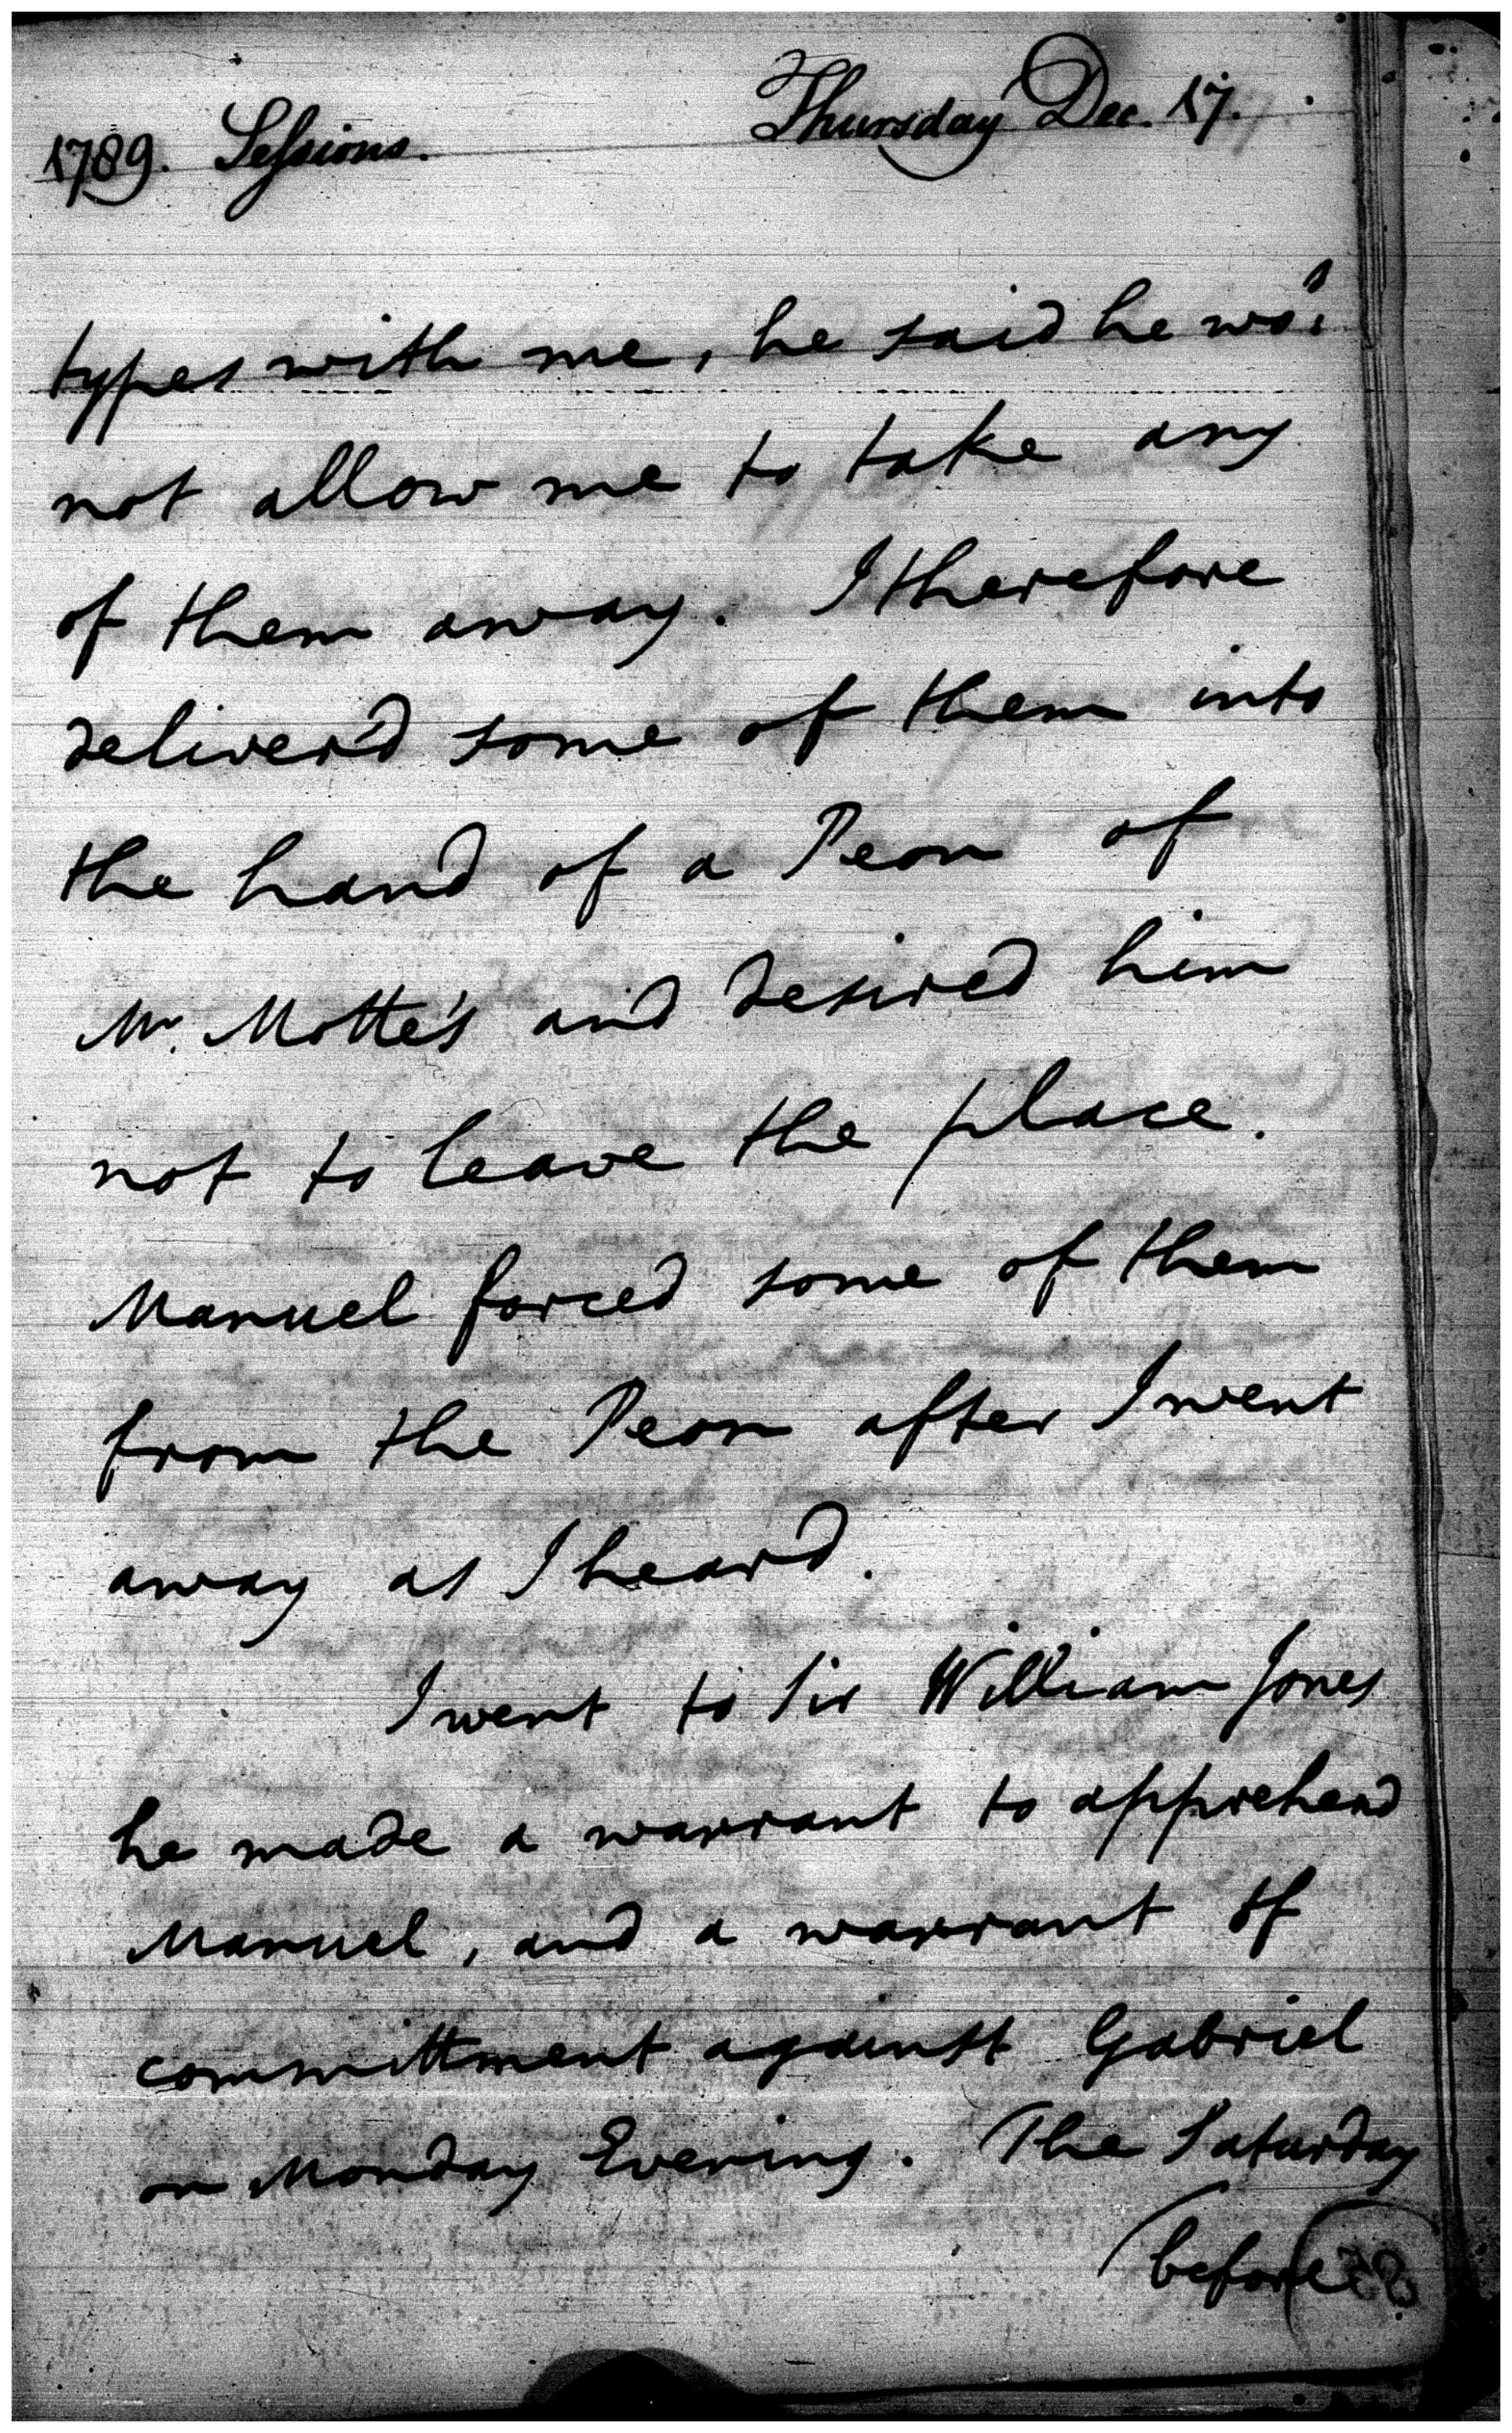 1789. Sessions. Thursday Dec. 17.
types with me, he said he wod.
not allow me to take any
of them away. I therefore
deliver'd some of them into
the hand of a Peon of
Mr. Motte's and desired him
not to leave the place.
Manuel forced some of them
from the Peon after I went
away as I heard.
I went to Sir William Jones
he made a warrant to apprehend
Manuel, and a warrant of
committment against Gabriel
on Monday Evening. The Saturday
before